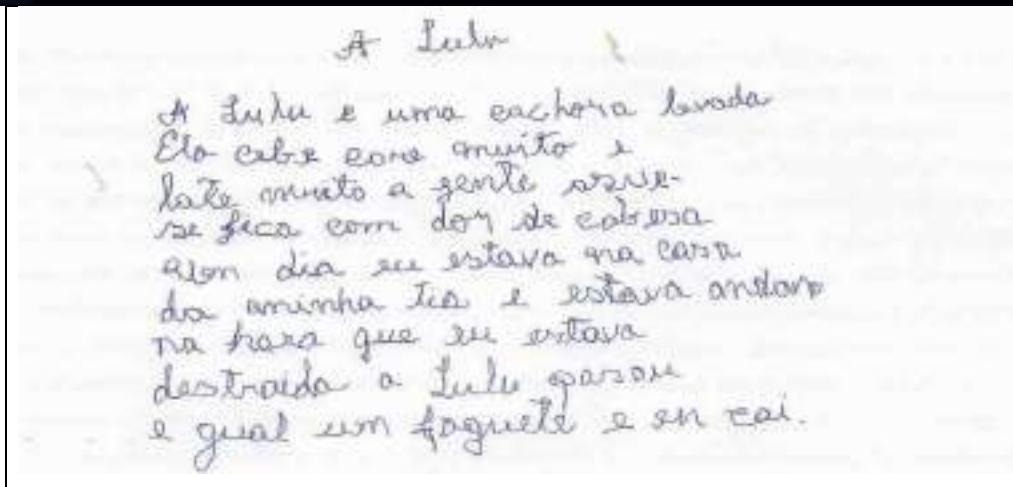 A Lulu
A Lulu e uma cachora levada
Ela core muito e
late muito a gente
se fica com dor de cabesa
dia eu estava na casa
da minha tia e estava andan
na hora que eu estava
destraida a Lulu pasou
e gual um foguete e eu cai.